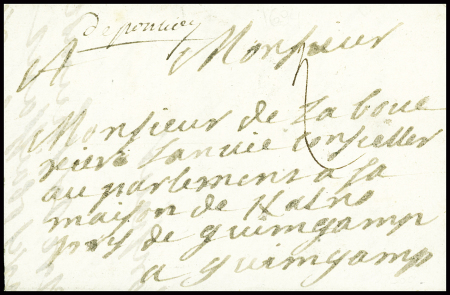 de pontivy
A Monsieur
2
Monsieur de La boue
xiere Janvie Conseiller
au parlement a Sa
maison de
pres de guimgamp
a guimgamp